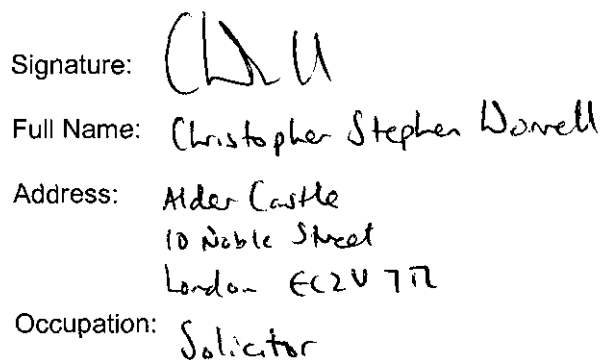 Signature:
Full Name: Christopher Stephen Worrell
Address: Alder Castle
10 Noble Street
London EC2V
Occupation: Solicitor